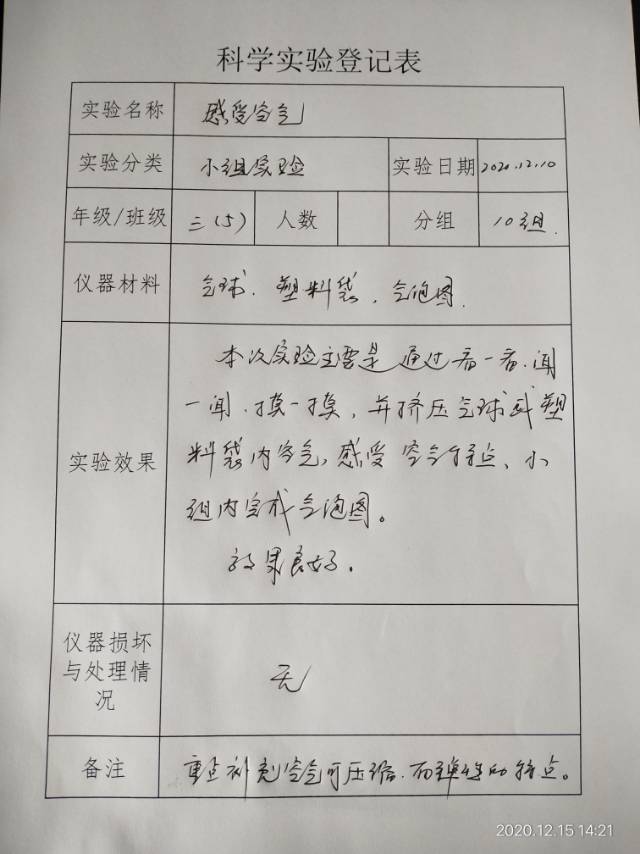 科学实验登记表
实验名称 感受空气
实验分类 小组实验 实验日期 2020.12.10
年级/班级 三(5) 人数 分组 10组.
仪器材料 气球.塑料袋.气泡图.
实验效果
本次实验主要是通过看一看.闻
一闻.摸一摸,并挤压气球或塑
料袋内空气,感受空气特点、小
组内完成气泡图。
效果良好.
仪器损坏
与处理情
况
无
备注 重点补充空气可压缩.有弹性的特点。
2020.12.15 14:21